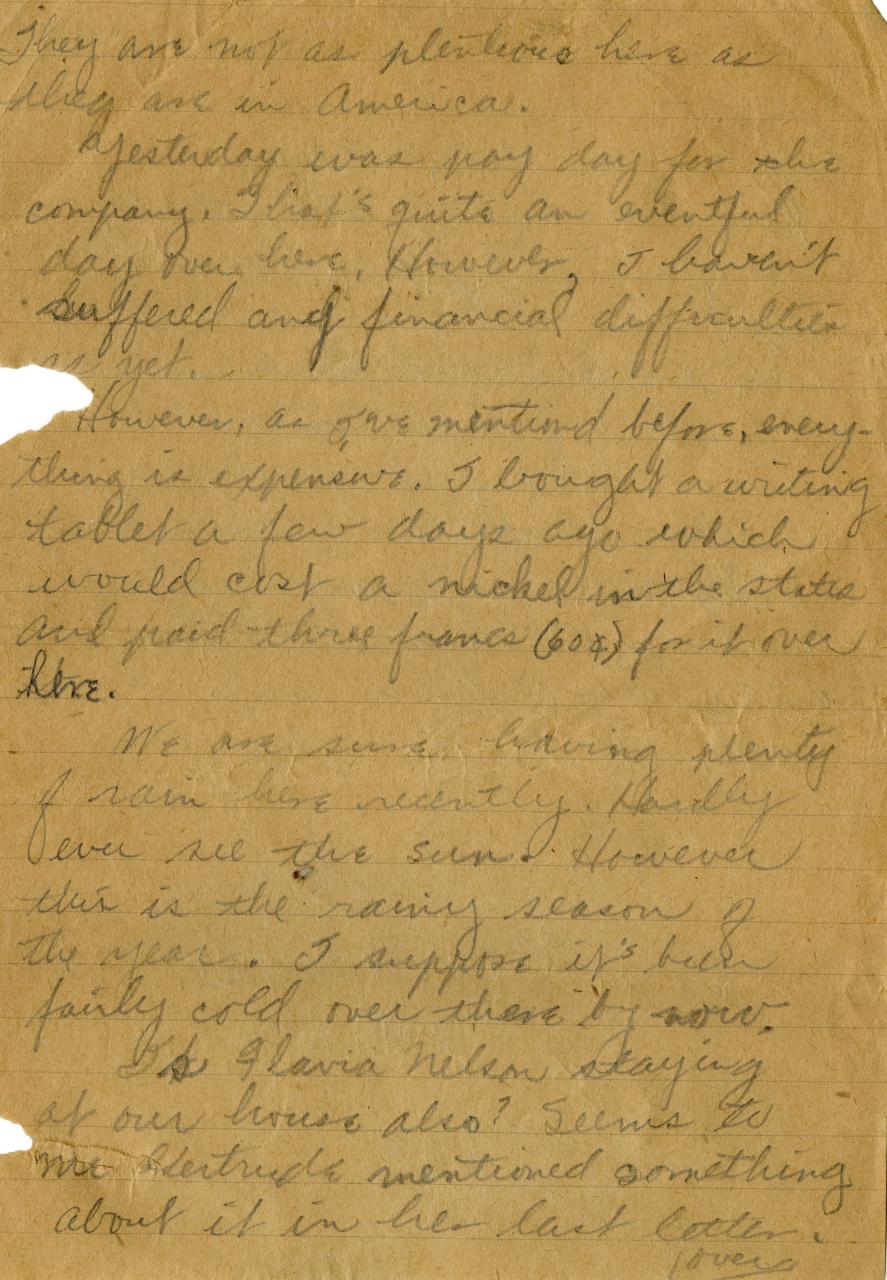 They are not as plenteous here as
they are in America.
Yesterday was pay day for the
company. That's quite an eventful
day over here. However, I haven't
suffered any financial difficulties
as yet.
However, as I've mentioned before, every-
thing is expensive. I bought a writing
tablet a few days ago which
would cost a nickel in the states
and paid three francs (60¢) for it over
here.
We are sure having plenty
of rain here recently. Hardly
ever see the sun. However
this is the rainy season of
the year. I suppose it's been
fairly cold over there by now.
Is Flavia Nelson staying
at our house also? Seems to
me Gertrude mentioned something
about it in her last letter.
(over)